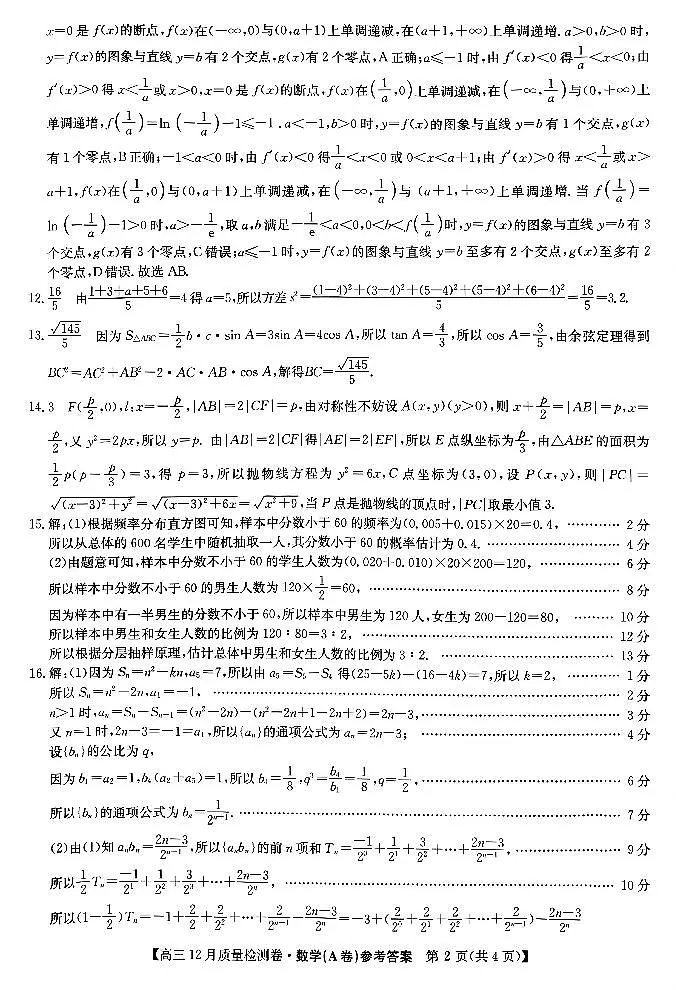 x=0是f(x)的断点,f(x)在(-∞,0)与(0,a+1)上单调递减,在(a+1,+∞)上单调递增.a>0,b>0时,
y=f(x)的图象与直线y=b有2个交点,g(x)有2个零点,A正确;a≤-1时,由f′(x)<0得1/a<x<0;由
f′(x)>0得x<1/a或x>0,x=0是f(x)的断点,f(x)在(1/a,0)上单调递减,在(-∞,1/a)与(0,+∞)上
单调递增,f(1/a)=ln(-1/a)-1≤-1.a<-1,b>0时,y=f(x)的图象与直线y=b有1个交点,g(x)
有1个零点,B正确;-1<a<0时,由f′(x)<0得1/a<x<0或0<x<a+1;由f′(x)>0得x<1/a或x>
a+1,f(x)在(1/a,0)与(0,a+1)上单调递减,在(-∞,1/a)与(a+1,+∞)上单调递增.当f(1/a)=
ln(-1/a)-1>0时,a>-1/e,取a,b满足-1/e<a<0,0<b<f(1/a)时,y=f(x)的图象与直线y=b有3
个交点,g(x)有3个零点,C错误;a≤-1时,y=f(x)的图象与直线y=b至多有2个交点,g(x)至多有2
个零点,D错误.故选AB.
12. 16/5 由(1+3+a+5+6)/5=4得a=5,所以方差s²=((1-4)²+(3-4)²+(5-4)²+(5-4)²+(6-4)²)/5=16/5=3.2.
13. √145/5 因为S△ABC=1/2 b·c·sin A=3sin A=4cos A,所以tan A=4/3,所以cos A=3/5,由余弦定理得到
BC²=AC²+AB²-2·AC·AB·cos A,解得BC=√145/5.
14. 3 F(p/2,0),l:x=-p/2,|AB|=2|CF|=p,由对称性不妨设A(x,y)(y>0),则x+p/2=|AB|=p,x=
p/2,又y²=2px,所以y=p.由|AB|=2|CF|得|AE|=2|EF|,所以E点纵坐标为p/3,由△ABE的面积为
1/2 p(p-p/3)=3,得p=3,所以抛物线方程为y²=6x,C点坐标为(3,0),设P(x,y),则|PC|=
√((x-3)²+y²)=√((x-3)²+6x)=√(x²+9),当P点是抛物线的顶点时,|PC|取最小值3.
15. 解:(1)根据频率分布直方图可知,样本中分数小于60的频率为(0.005+0.015)×20=0.4, ………… 2分
所以从总体的600名学生中随机抽取一人,其分数小于60的概率估计为0.4. ………… 4分
(2)由题意可知,样本中分数不小于60的学生人数为(0.020+0.010)×20×200=120, ………… 6分
所以样本中分数不小于60的男生人数为120×1/2=60, ………… 8分
因为样本中有一半男生的分数不小于60,所以样本中男生为120人,女生为200-120=80, ………… 10分
所以样本中男生和女生人数的比例为120∶80=3∶2, ………… 12分
所以根据分层抽样原理,估计总体中男生和女生人数的比例为3∶2. ………… 13分
16. 解:(1)因为Sₙ=n²-kn,a₅=7,所以由a₅=S₅-S₄得(25-5k)-(16-4k)=7,所以k=2, ………… 1分
所以Sₙ=n²-2n,a₁=-1. ………… 2分
n>1时,aₙ=Sₙ-Sₙ₋₁=(n²-2n)-(n²-2n+1-2n+2)=2n-3, ………… 3分
又n=1时,2n-3=-1=a₁,所以{aₙ}的通项公式为aₙ=2n-3; ………… 4分
设{bₙ}的公比为q,
因为b₁=a₂=1,b₄(a₂+a₅)=1,所以b₄=1/8,q³=b₄/b₁=1/8,q=1/2, ………… 6分
所以{bₙ}的通项公式为bₙ=1/2ⁿ⁻¹. ………… 7分
(2)由(1)知aₙbₙ=(2n-3)/2ⁿ⁻¹,所以{aₙbₙ}的前n项和Tₙ=-1/2⁰+1/2¹+3/2²+…+(2n-3)/2ⁿ⁻¹, ………… 9分
所以1/2 Tₙ=-1/2¹+1/2²+3/2³+…+(2n-3)/2ⁿ, ………… 10分
所以(1-1/2)Tₙ=-1+2/2+2/2²+…+2/2ⁿ⁻¹-(2n-3)/2ⁿ=-3+(2/2⁰+2/2¹+2/2²+…+2/2ⁿ⁻¹)-(2n-3)/2ⁿ
【高三12月质量检测卷·数学(A卷)参考答案 第2页(共4页)】